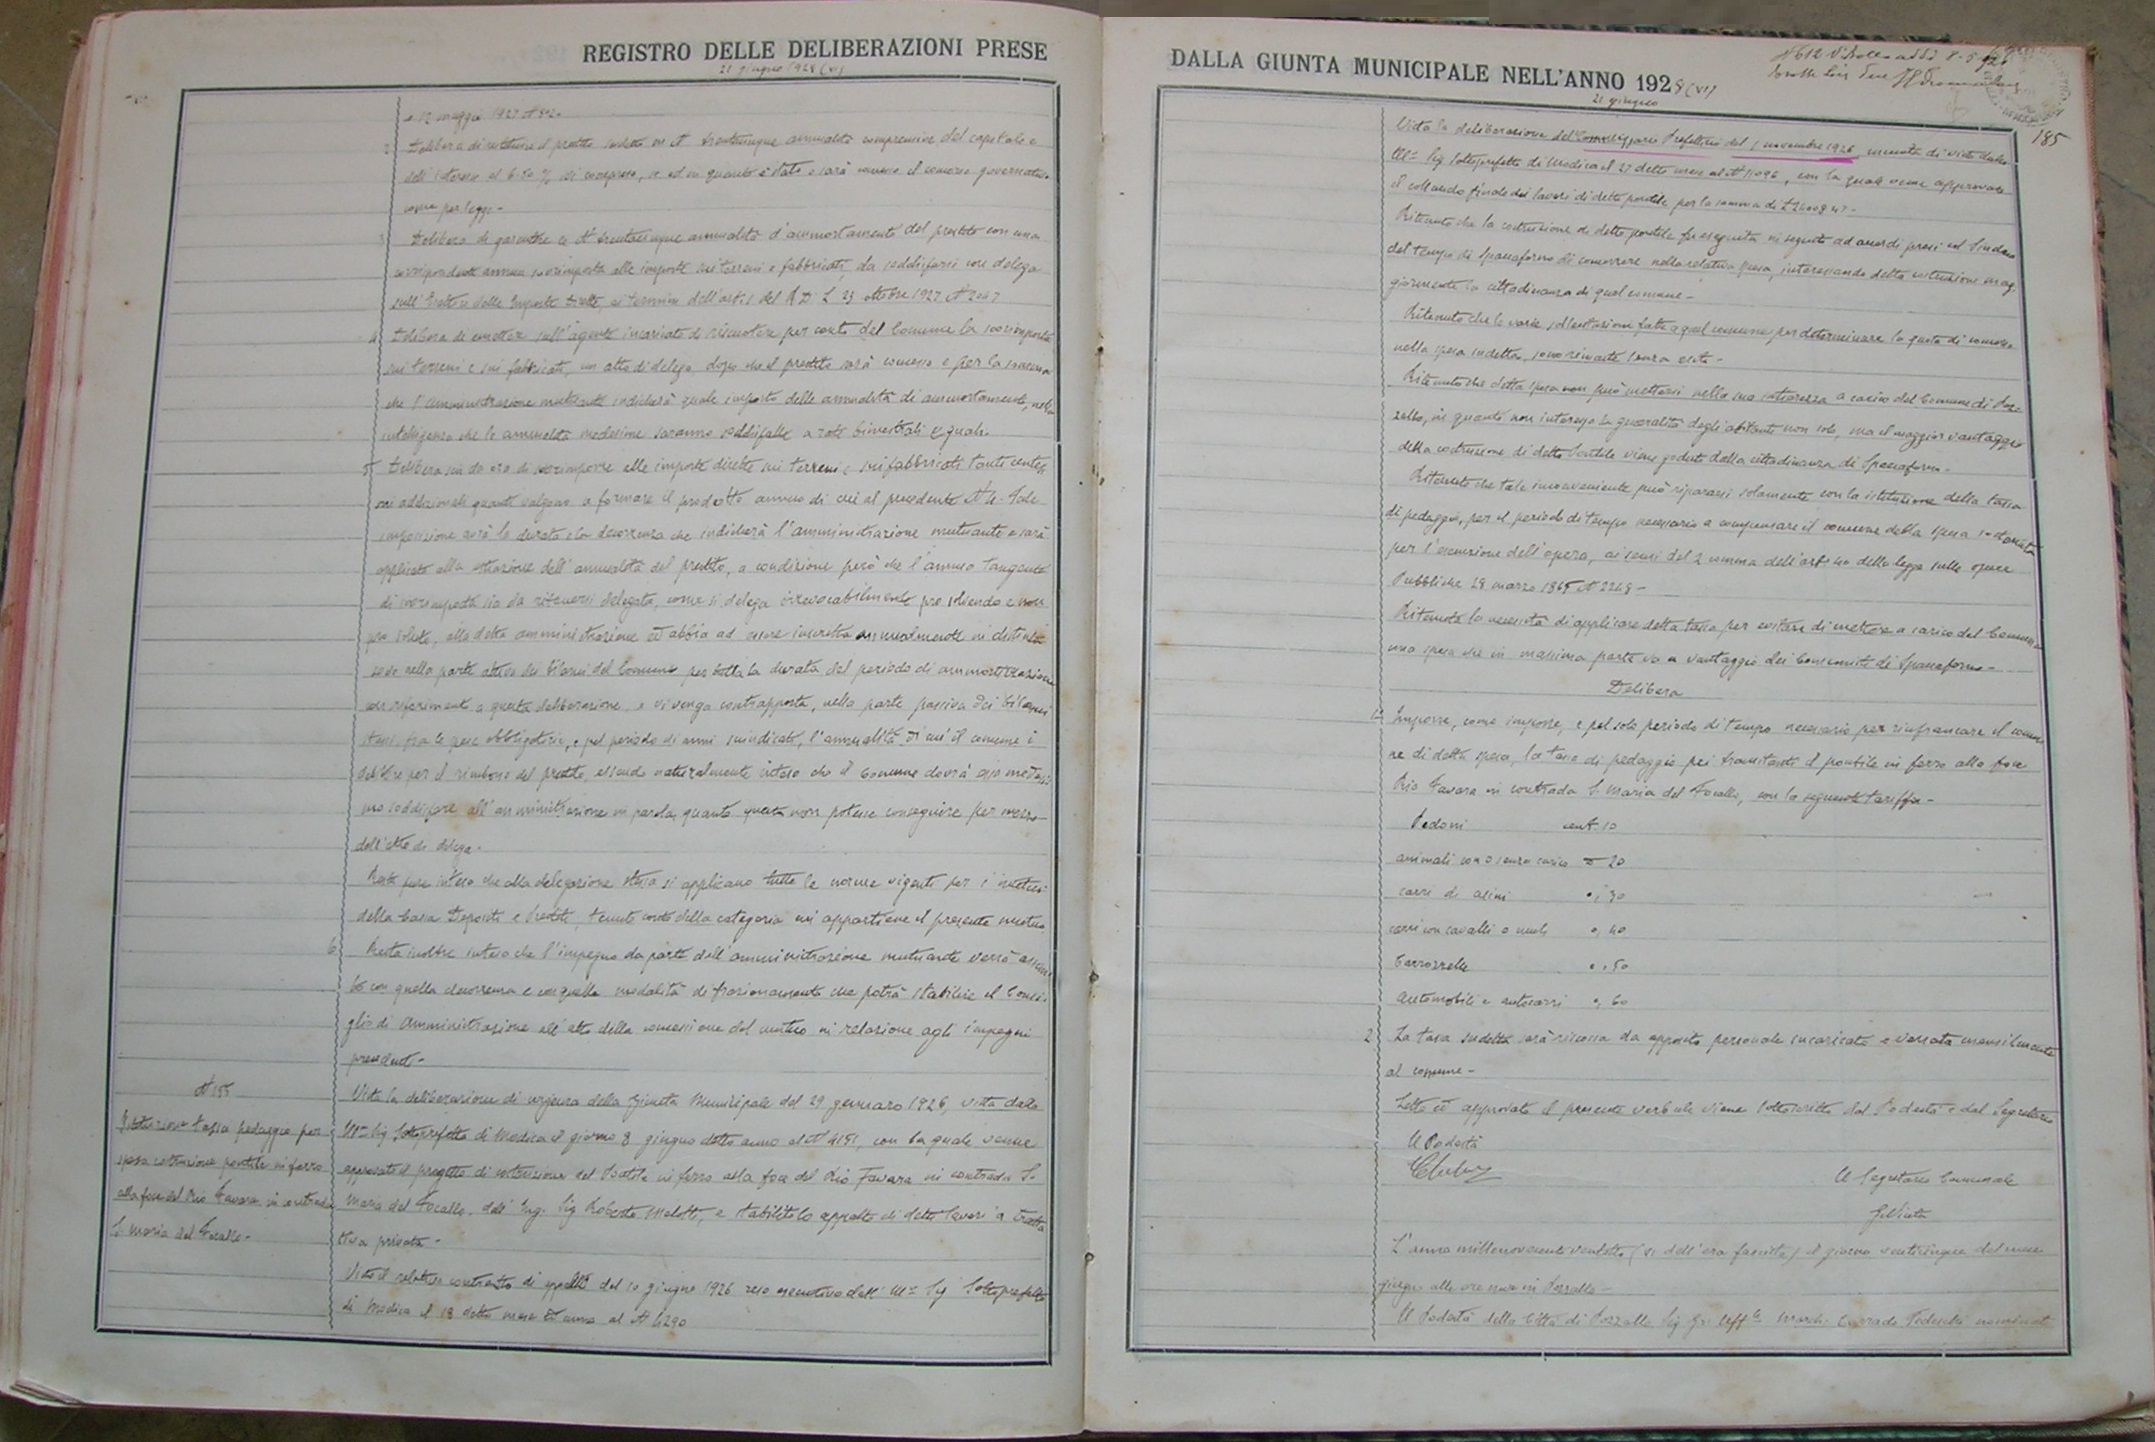 REGISTRO DELLE DELIBERAZIONI PRESE
21 giugno 1928 (VI)
12 maggio 1927 N°
2 Delibera di restituire il prestito suddetto in N° trentacinque annualità comprensive del capitale e
dell'interesse al 6.50 % se ed in quanto è stato o sarà concesso il concorso governativo
come per legge -
3 Delibera di garentire le N° trentacinque annualità d'ammortamento del prestito con una
corrispondente annua sovrimposta alle imposte sui terreni e fabbricati, da soddisfarsi con delega
sull'Esattore delle Imposte Dirette, ai termini dell'art. 1 del R.D. L 23 ottobre 1927 N° 2067
4 Delibera di emettere sull'agente incaricato di riscuotere per conto del Comune la sovrimposta
sui terreni e sui fabbricati, un atto di delega, dopo che il prestito sarà concesso e per la somma
che l'amministrazione mutuante indicherà quale importo delle annualità di ammortamento, nella
intelligenza che le annualità medesime saranno soddisfatte a rate bimestrali eguali.
5 Delibera sin da ora di sovrimporre alle imposte dirette sui terreni e sui fabbricati tanti centesi
mi addizionali quanti valgano a formare il prodotto annuo di cui al precedente N° 4 - Tale
imposizione avrà la durata e la decorrenza che indicherà l'amministrazione mutuante e sarà
applicata alla estinzione dell'annualità del prestito, a condizione però che l'annuo tangente
di sovrimposta sia da ritenersi delegata, come si delega irrevocabilmente pro solvendo e non
pro soluto, alla detta amministrazione ed abbia ad essere inscritta annualmente in distinta
sede nella parte attiva dei bilanci del Comune per tutta la durata del periodo di ammortizzazione
con riferimento a questa deliberazione, e vi venga contrapposta, nella parte passiva dei bilanci
stessi, fra le spese obbligatorie, e pel periodo di anni suindicato, l'annualità di cui il comune è
debitore per il rimborso del prestito, essendo naturalmente inteso che il Comune dovrà esso medesi
mo soddisfare all'amministrazione in parola quanto questa non potesse conseguire per mezzo
dell'atto di delega -
Resta pure inteso che alla delegazione stessa si applicano tutte le norme vigenti per i mutui
della Cassa Depositi e Prestiti, tenuto conto della categoria cui appartiene il presente mutuo
6 Resta inoltre inteso che l'impegno da parte dell'amministrazione mutuante verrà assun
to con quella decorrenza e con quella modalità di frazionamento che potrà stabilire il Consi
glio di Amministrazione all'atto della concessione del mutuo in relazione agli impegni
precedenti -
N° 155
Istituzione tassa pedaggio per
spesa costruzione pontile in ferro
alla foce del Rio Favara in contrada
S. Maria del Focallo -
Vista la deliberazione di urgenza della Giunta Municipale del 29 gennaro 1926, vista dallo
Ill.mo Sig. Sottoprefetto di Modica il giorno 8 giugno detto anno al N° 4151, con la quale venne
approvato il progetto di costruzione del Pontile in ferro alla foce del Rio Favara in contrada S.
Maria del Focallo, dell'Ing. Sig. Roberto Meletti, e stabilito lo appalto di detti lavori a tratta
tiva privata -
Visto il relativo contratto di appalto del 10 giugno 1926 reso esecutivo dall'Ill.mo Sig. Sottoprefetto
di Modica il 18 detto mese ed anno al N° 4290
DALLA GIUNTA MUNICIPALE NELL'ANNO 1928 (VI)
21 giugno
185
Vista la deliberazione del Commissario Prefettizio del 1 novembre 1926 munita di visto dallo
Ill.mo Sig. Sottoprefetto di Modica il 27 detto mese al N° 11096, con la quale venne approvato
il collaudo finale dei lavori di detto pontile per la somma di
Ritenuto che la costruzione di detto pontile fu eseguita in seguito ad accordi presi col Sindaco
del tempo di Spaccaforno di concorrere nella relativa spesa, interessando detta costruzione mag
giormente la cittadinanza di quel comune -
Ritenuto che le varie sollecitazioni fatte a quel comune per determinare la quota di concorso
nella spesa suddetta, sono rimaste senza esito -
Ritenuto che detta spesa non può mettersi nella sua interezza a carico del Comune di Poz
zallo, in quanto non interessa la generalità degli abitanti non solo, ma il maggior vantaggio
della costruzione di detto Pontile viene goduto dalla cittadinanza di Spaccaforno -
Ritenuto che tale inconveniente può ripararsi solamente con la istituzione della tassa
di pedaggio, per il periodo di tempo necessario a compensare il comune della spesa sostenuta
per l'esecuzione dell'opera, ai sensi del 2 comma dell'art. 40 della legge sulle opere
Pubbliche 28 marzo 1865 N° 2248 -
Ritenuta la necessità di applicare detta tassa per evitare di mettere a carico del Comune
una spesa che in massima parte va a vantaggio dei Comunisti di Spaccaforno -
Delibera
1° Imporre, come impone, e pel solo periodo di tempo necessario per rinfrancare il comu
ne di detta spesa, la tassa di pedaggio pei transitanti il pontile in ferro alla foce
Rio Favara in contrada S. Maria del Focallo, con la seguente tariffa -
Pedoni cent. 10
animali con o senza carico " 20
carri di asini " 30
carri con cavalli o muli " 40
Carrozzelle " 50
automobili e autocarri " 60
2 La tassa suddetta sarà riscossa da apposito personale incaricato e versata mensilmente
al comune -
Letto ed approvato il presente verbale viene sottoscritto dal Podestà e dal Segretario
Il Podestà
Il Segretario Comunale
L'anno millenovecentoventotto (VI dell'era fascista) il giorno venticinque del mese
giugno alle ore nove in Pozzallo -
Il Podestà della Città di Pozzallo Sig. Gr. Uff.le March. Corrado Tedeschi nominato